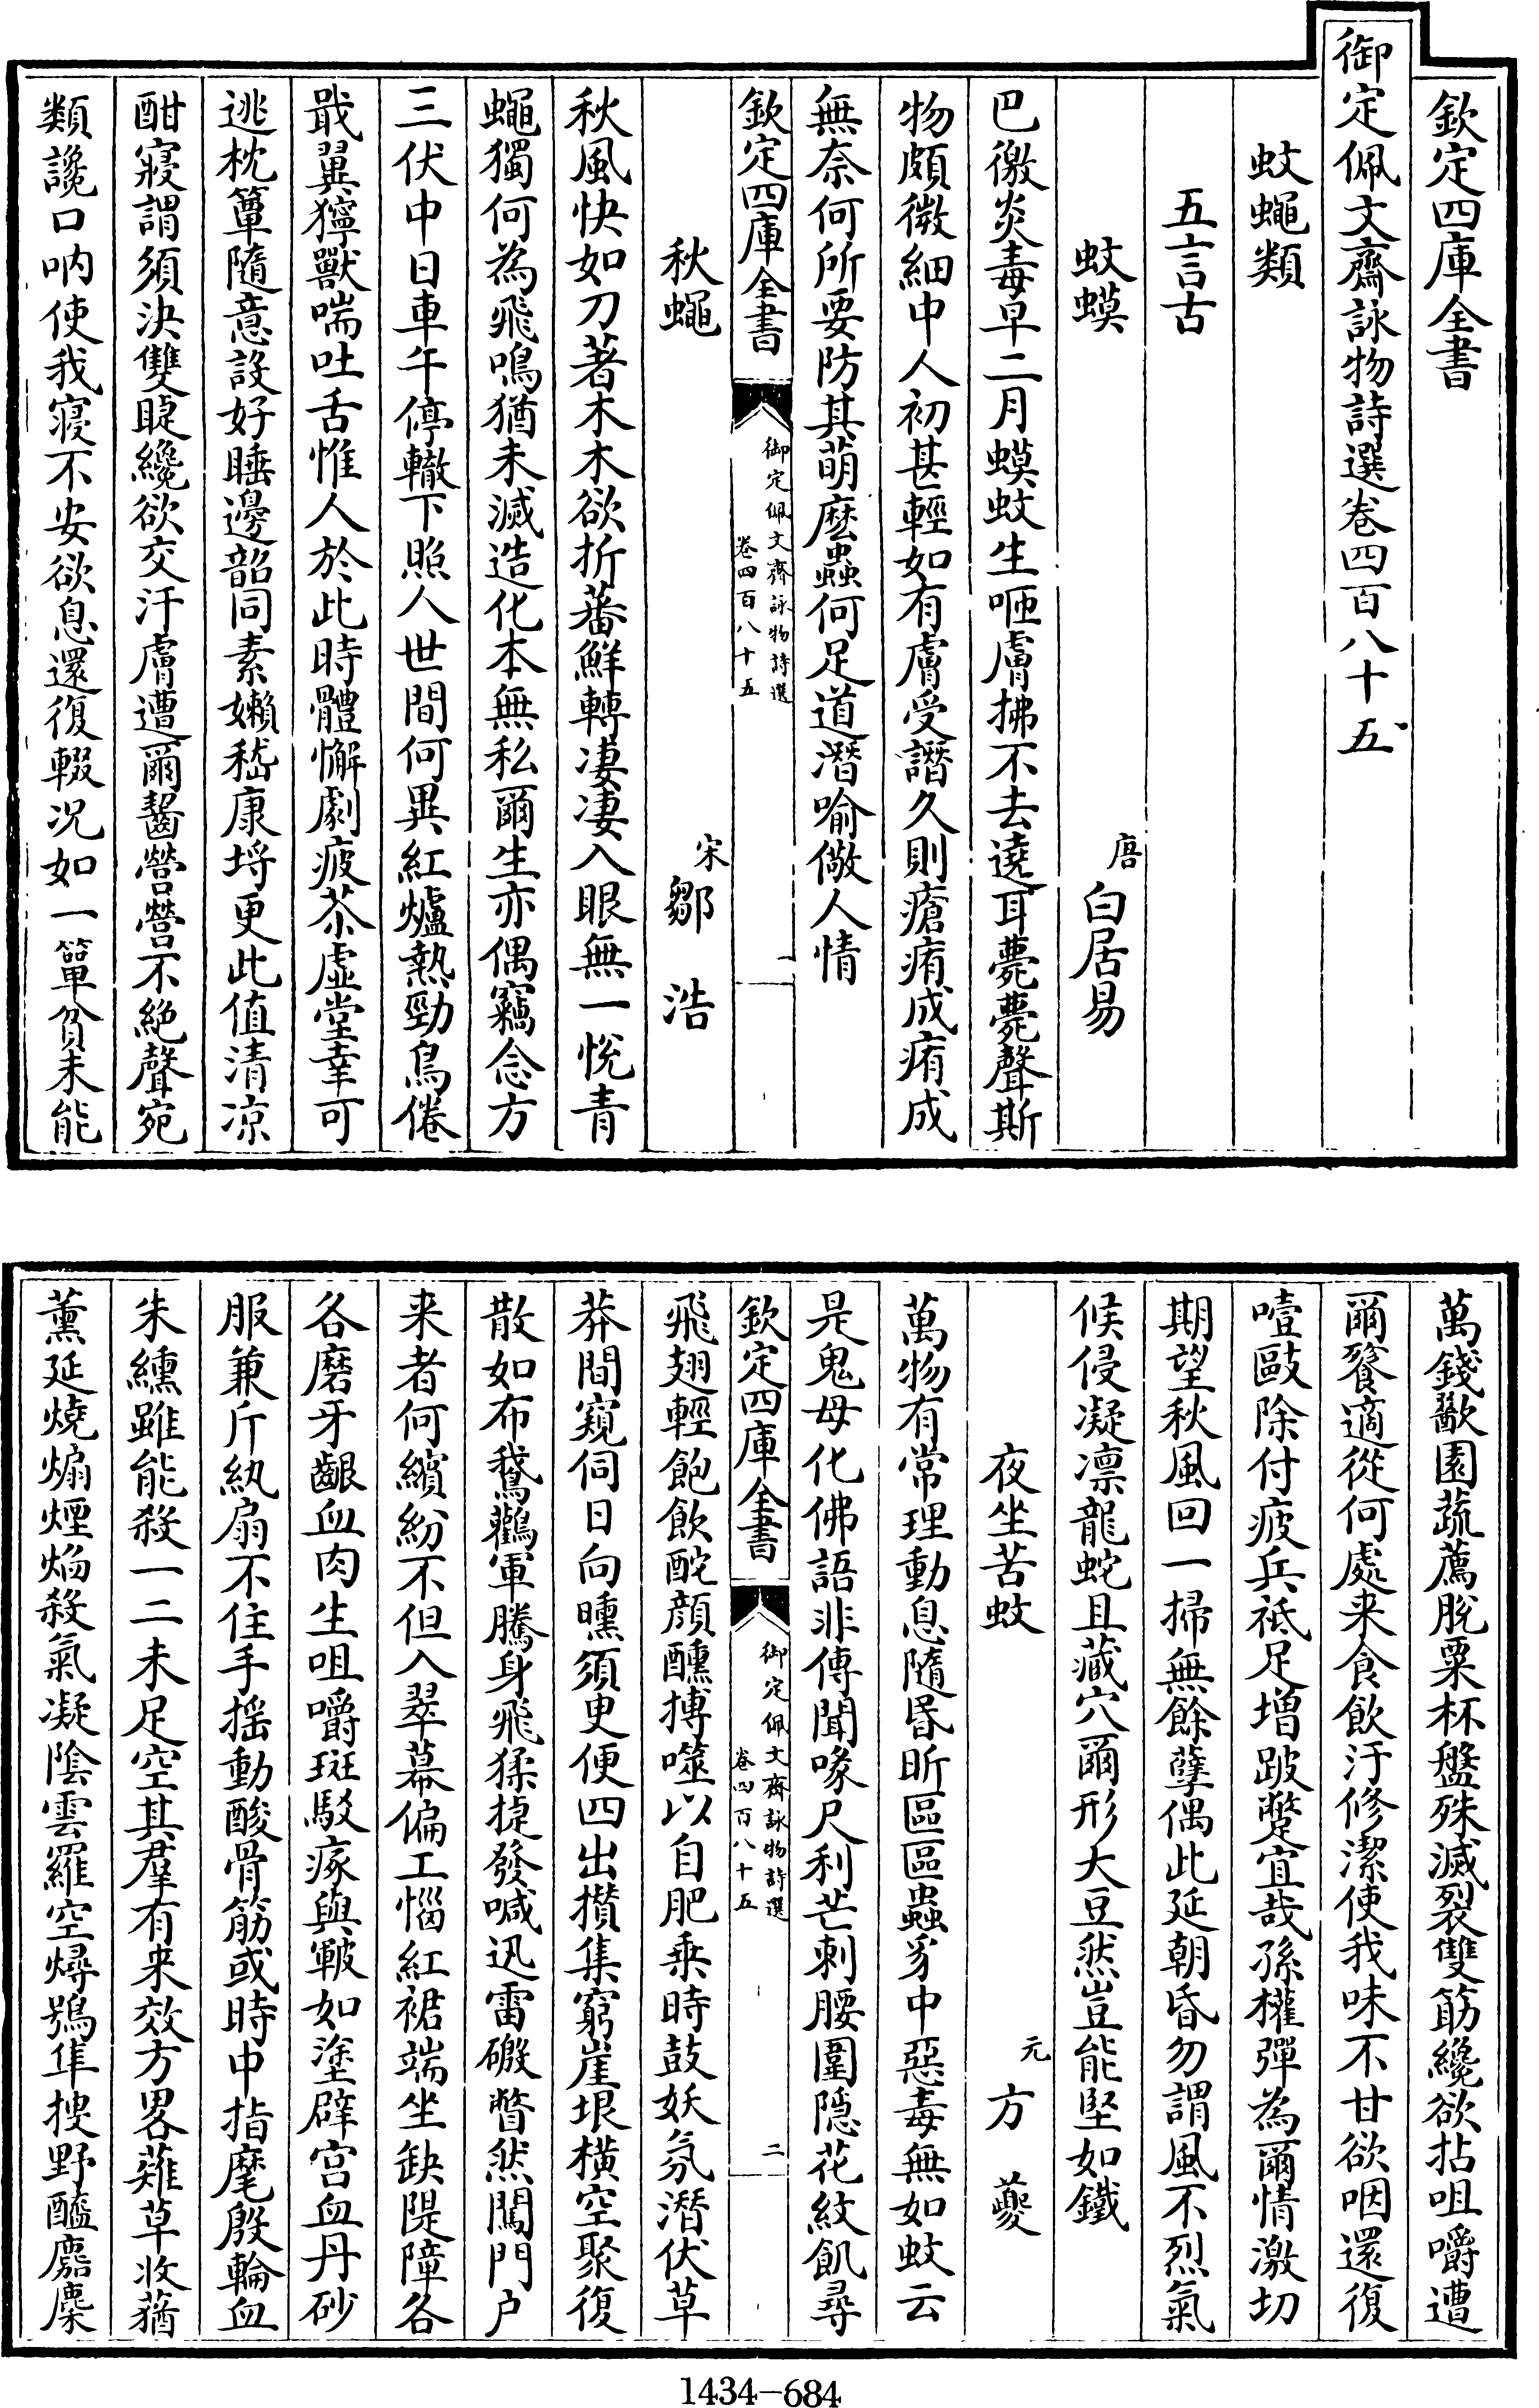 欽定四庫全書
御定佩文齋詠物詩選卷四百八十五
蚊蠅類
五言古
蚊蟆
唐 白居易
巴徼炎毒早二月蟆蚊生咂膚拂不去遶耳薨薨聲斯
物頗微細中人初甚輕如有膚受譖久則瘡痏成痏成
無奈何所要防其萌麽蟲何足道潛喻儆人情
欽定四庫全書
御定佩文齋詠物詩選
卷四百八十五
一
秋蠅
宋 鄒浩
秋風快如刀著木木欲折蕃鮮轉凄凄入眼無一悅青
蠅獨何為飛鳴猶未滅造化本無私爾生亦偶竊念方
三伏中日車午停轍下照人世間何異紅爐熱勁鳥倦
戢翼獰獸喘吐舌惟人於此時體懈劇疲苶虛堂幸可
逃枕簟隨意設好睡邊韶同素嬾嵇康埒更此值清凉
酣寢謂須決雙睫纔欲交汗膚遭爾齧營營不絶聲宛
類讒口吶使我寢不安欲息還復輟况如一簞貧未能
萬錢歠園蔬薦脫粟杯盤殊滅裂雙筯纔欲拈咀嚼遭
爾餮適從何處来食飲汙修潔使我味不甘欲咽還復
噎毆除付疲兵祗足增跛蹩宜哉孫權彈為爾情激切
期望秋風回一掃無餘孽偶此延朝昏勿謂風不烈氣
候侵凝凛龍蛇且藏穴爾形大豆然豈能堅如鐵
夜坐苦蚊
元 方夔
萬物有常理動息隨昬昕區區蟲豸中惡毒無如蚊云
是鬼母化佛語非傳聞喙尺利芒刺腰圍隱花紋飢尋
欽定四庫全書
御定佩文齋詠物詩選
卷四百八十五
二
飛翅輕飽飲酡顔醺摶噬以自肥乗時鼓妖氛潛伏草
莽間窺伺日向曛須更便四出攅集窮崖垠橫空聚復
散如布鵞鸛軍騰身飛猱捷發喊迅雷磤瞥然闖門户
来者何繽紛不但入翠幕偏工惱紅裙端坐缺隄障各
各磨牙齦血肉生咀嚼斑駁瘃與皸如塗辟宫血丹砂
服兼斤紈扇不住手揺動酸骨筋或時中指麾殷輪血
朱纁雖能殺一二未足空其羣有来效方畧薙草收蕕
薰延燒煽煙焰殺氣凝陰雲羅空燖鴞隼捜野醢麃麇
1434-684